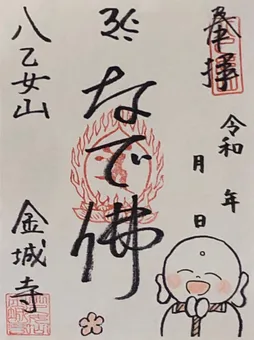 奉拝
令和 年
月 日
なで佛
八乙女山 金城寺